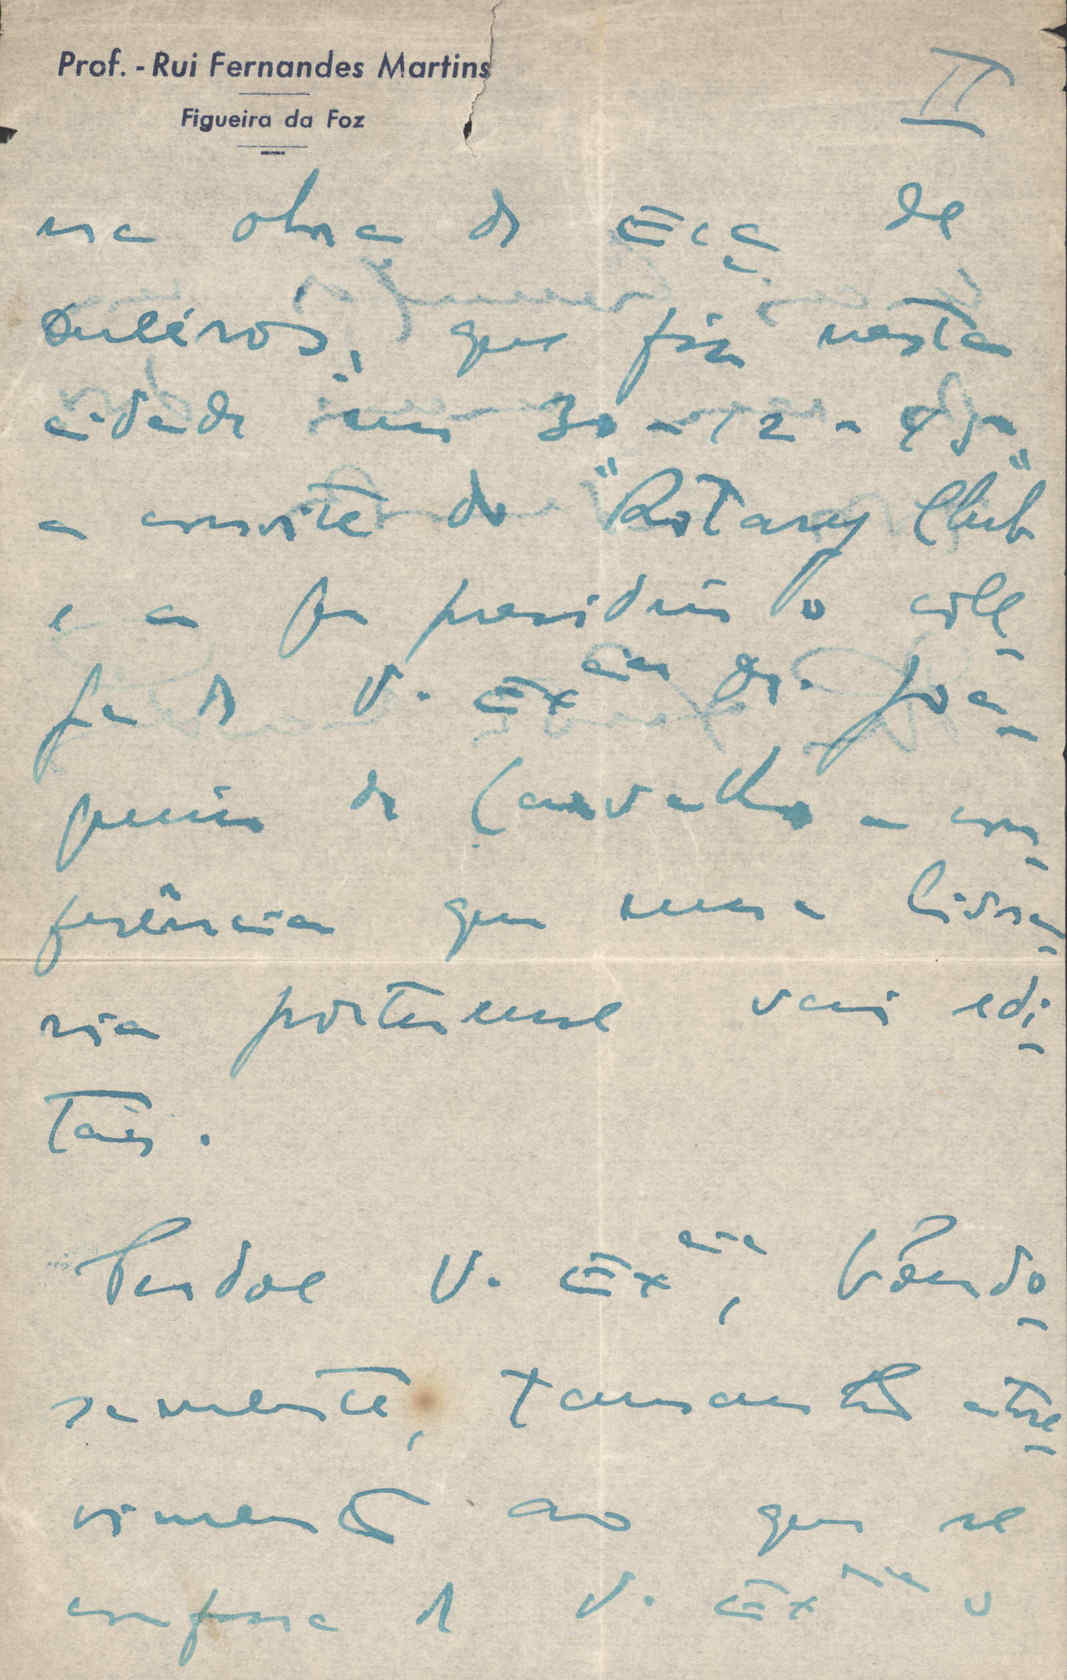 Prof. - Rui Fernandes Martins
Figueira da Foz
II
na obra de Eça de
Queiroz, que fiz nesta
cidade em 30-12-45,
a convite do "Rotary Club"
e a que presidiu o cole
ga de V. Excia Dr. Joa-
quim de Carvalho – con-
ferência que uma livra-
ria portuense vai edi-
tar.
Perdoe V. Excia, bondo-
samente, tamanho atre-
vimento ao que se
confessa de V. Excia o